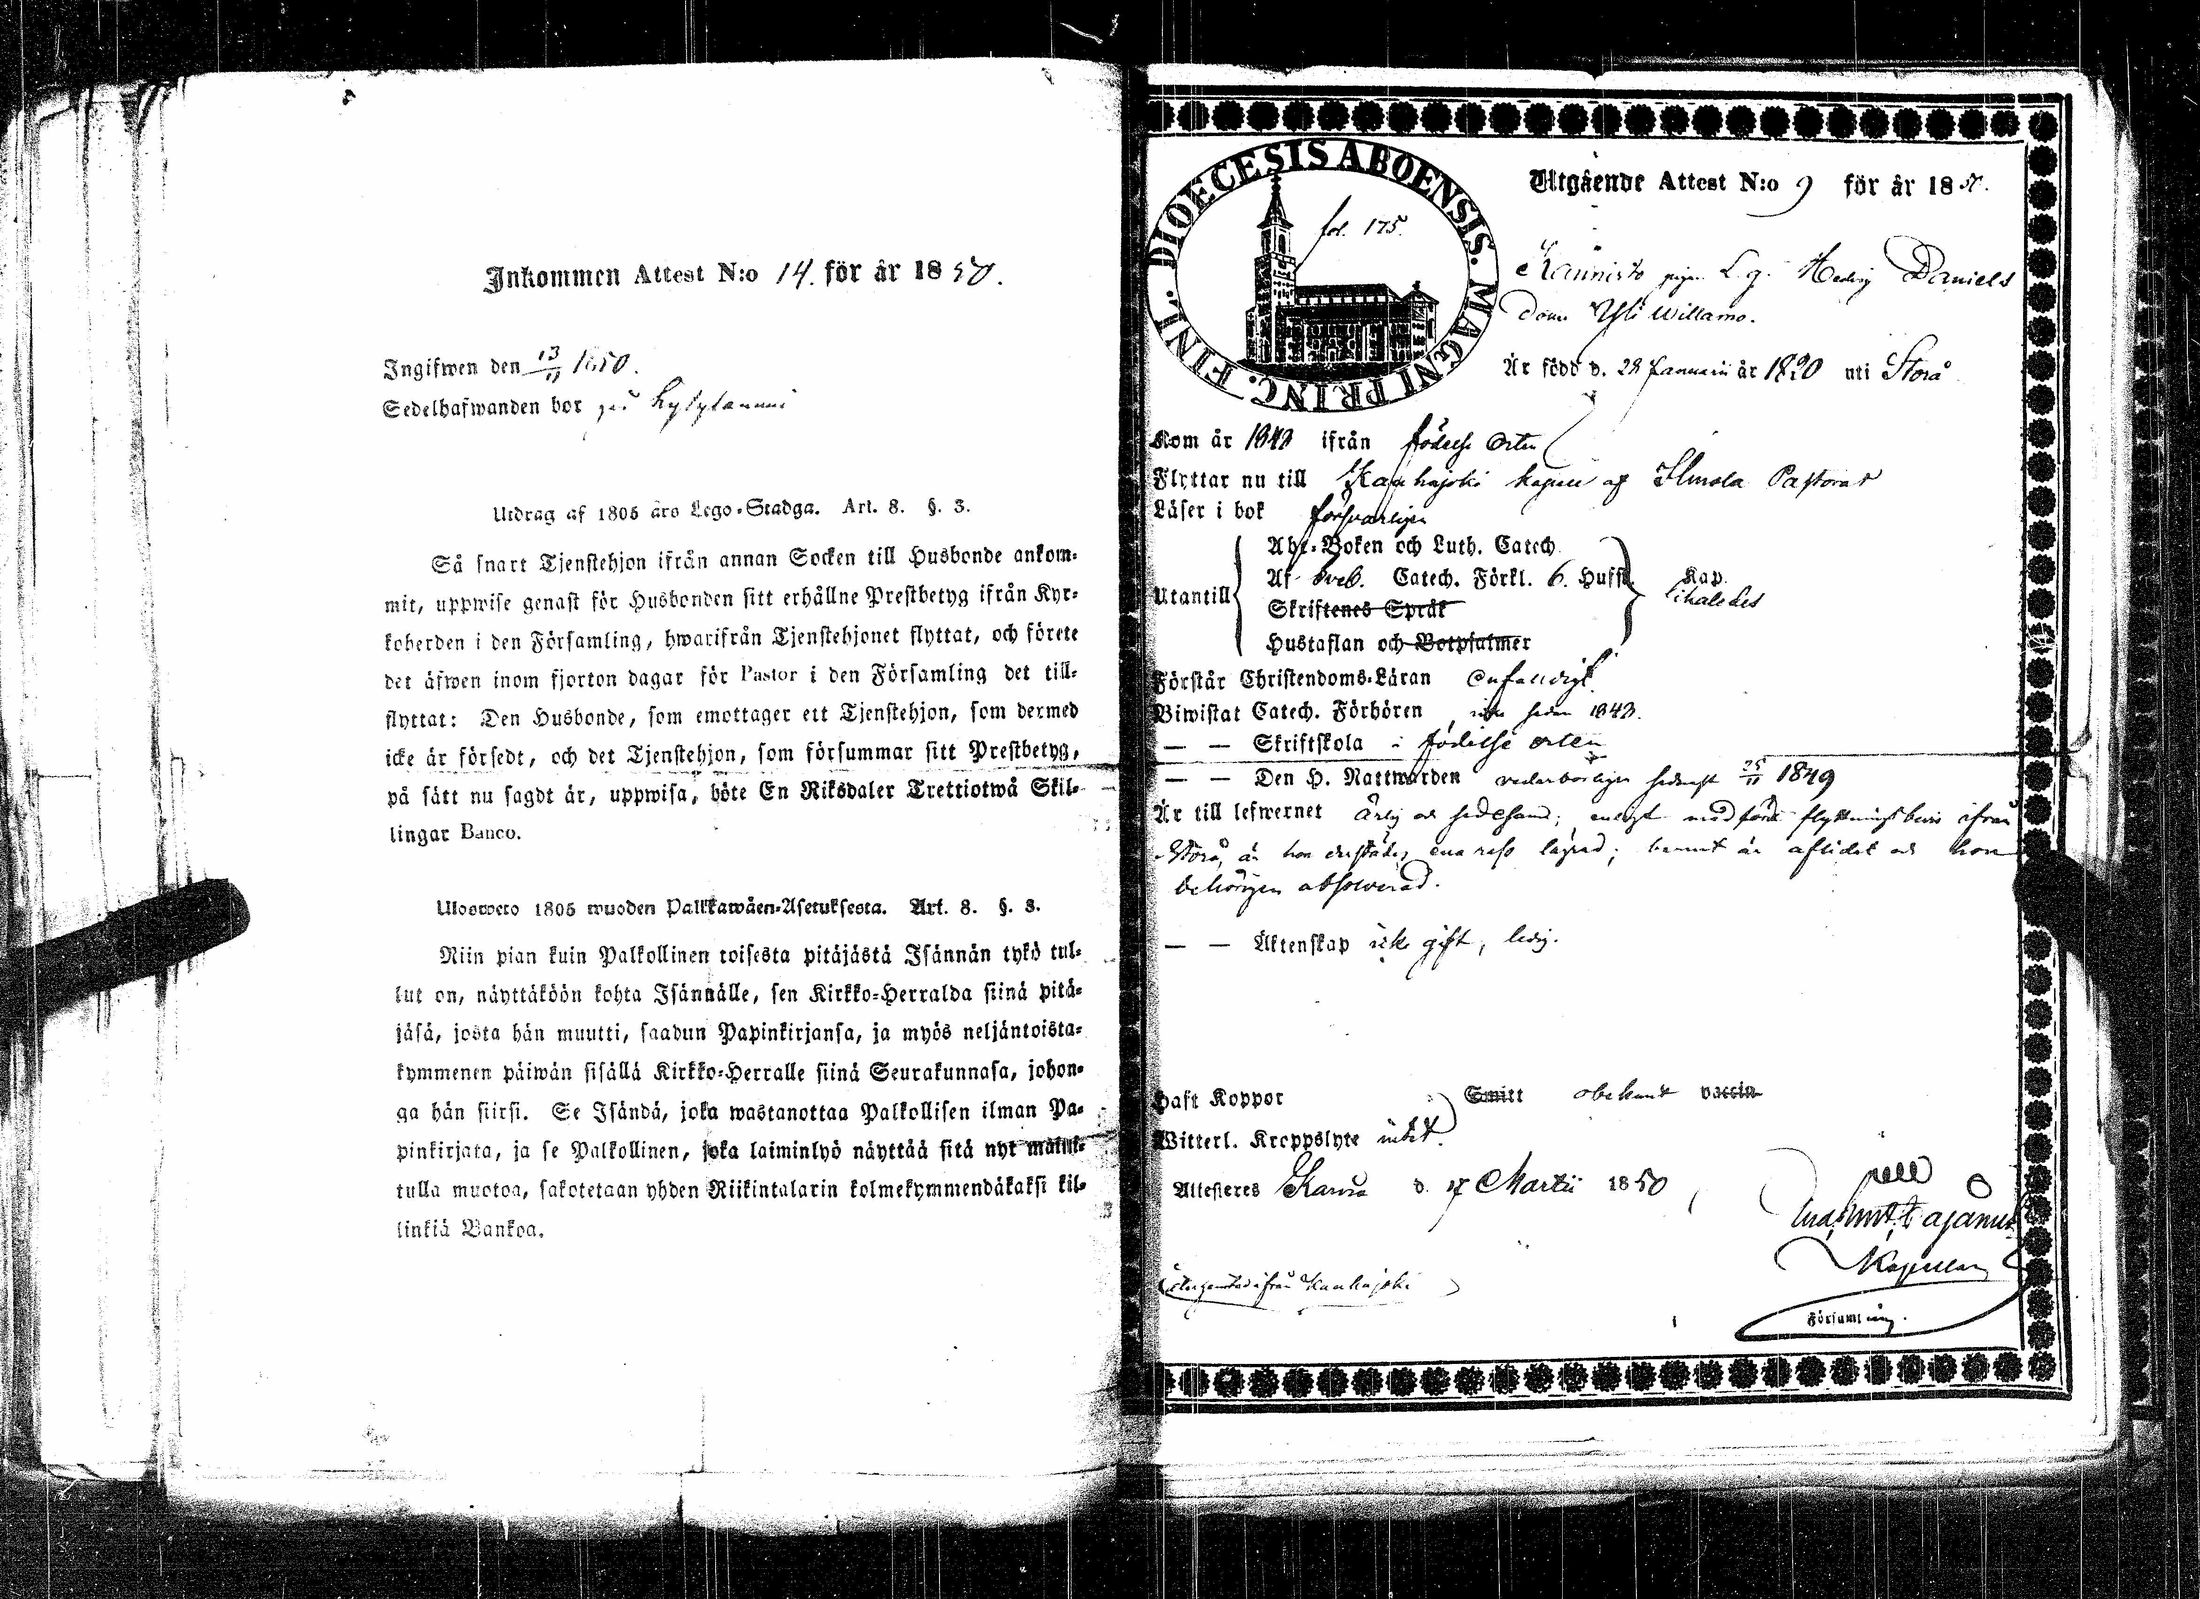 Inkommen Attest N:o 14. för år 1850.
Ingifwen den 13/11 1850.
Sedelhafwanden bor på
Utdrag af 1805 års Lego-Stadga. Art. 8. §. 3.
Så snart Tjenstehjon ifrån annan Socken till Husbonde ankom-
mit, uppwise genast för Husbonden sitt erhållne Prestbetyg ifrån Kyr-
koherden i den Församling, hwarifrån Tjenstehjonet flyttat, och förete
det äfwen inom fjorton dagar för Pastor i den Församling det till-
flyttat: Den Husbonde, som emottager ett Tjenstehjon, som dermed
icke är försedt, och det Tjenstehjon, som försummar sitt Prestbetyg,
på sätt nu sagdt är, uppwisa, böte En Riksdaler Trettiotwå Skil-
lingar Banco.
Ulosweto 1805 wuoden Palkkawäen-Asetuksesta. Art. 8. §. 3.
Niin pian kuin Palkollinen toisesta pitäjästä Isännän tykö tul-
lut on, näyttäköön kohta Isännälle, sen Kirkko-Herralda siinä pitä-
jäsä, josta hän muutti, saadun Papinkirjansa, ja myös neljäntoista-
kymmenen päiwän sisällä Kirkko-Herralle siinä Seurakunnasa, johon-
ga hän siirsi. Se Isändä, joka wastanottaa Palkollisen ilman Pa-
pinkirjata, ja se Palkollinen, joka laiminlyö näyttää sitä nyt mainit-
tulla muotoa, sakotetaan yhden Riikintalarin kolmekymmendäkaksi kil-
linkiä Bankoa.
DIOECESIS ABOENSIS. MAGNI PRINC. FINL.
fol. 175.
Utgående Attest N:o 9 för år 1850.
Kaunisto pigan L. g. Hedvig Daniels
dotter Yli Willamo.
Är född d. 28 Januarii år 1820 uti Storå
Kom år 1843 ifrån födelse orten
Flyttar nu till Kauhajoki kapell af Ilmola Pastorat
Läser i bok försvarligen
Utantill
Abc-Boken och Luth. Catech.
Af Sveb. Catech. Förkl. 6. Hufst. Kap.
Skriftenes Språk likaledes
Hustaflan och Botpsalmer
Förstår Christendoms-Läran enfaldigt
Biwistat Catech. Förhören, icke sedan 1843.
— — Skriftskola i födelse orten
— — Den H. Nattwarden vederbörligen sednast 25/11 1849
Är till lefwernet ärlig och sedesam; enligt medförd flyttningsbevis ifrån
Storå, är hon derstädes ena resa lägrad; barnet är aflidet och hon
behörigen absolverad.
— — Äktenskap icke gift, ledig.
Haft Koppor Smitt obekant vaccin
Witterl. Kroppslyte intet.
Attesteres Karvia d. 17 Martii 1850
Kapellan
Församling.
ifrån Kauhajoki